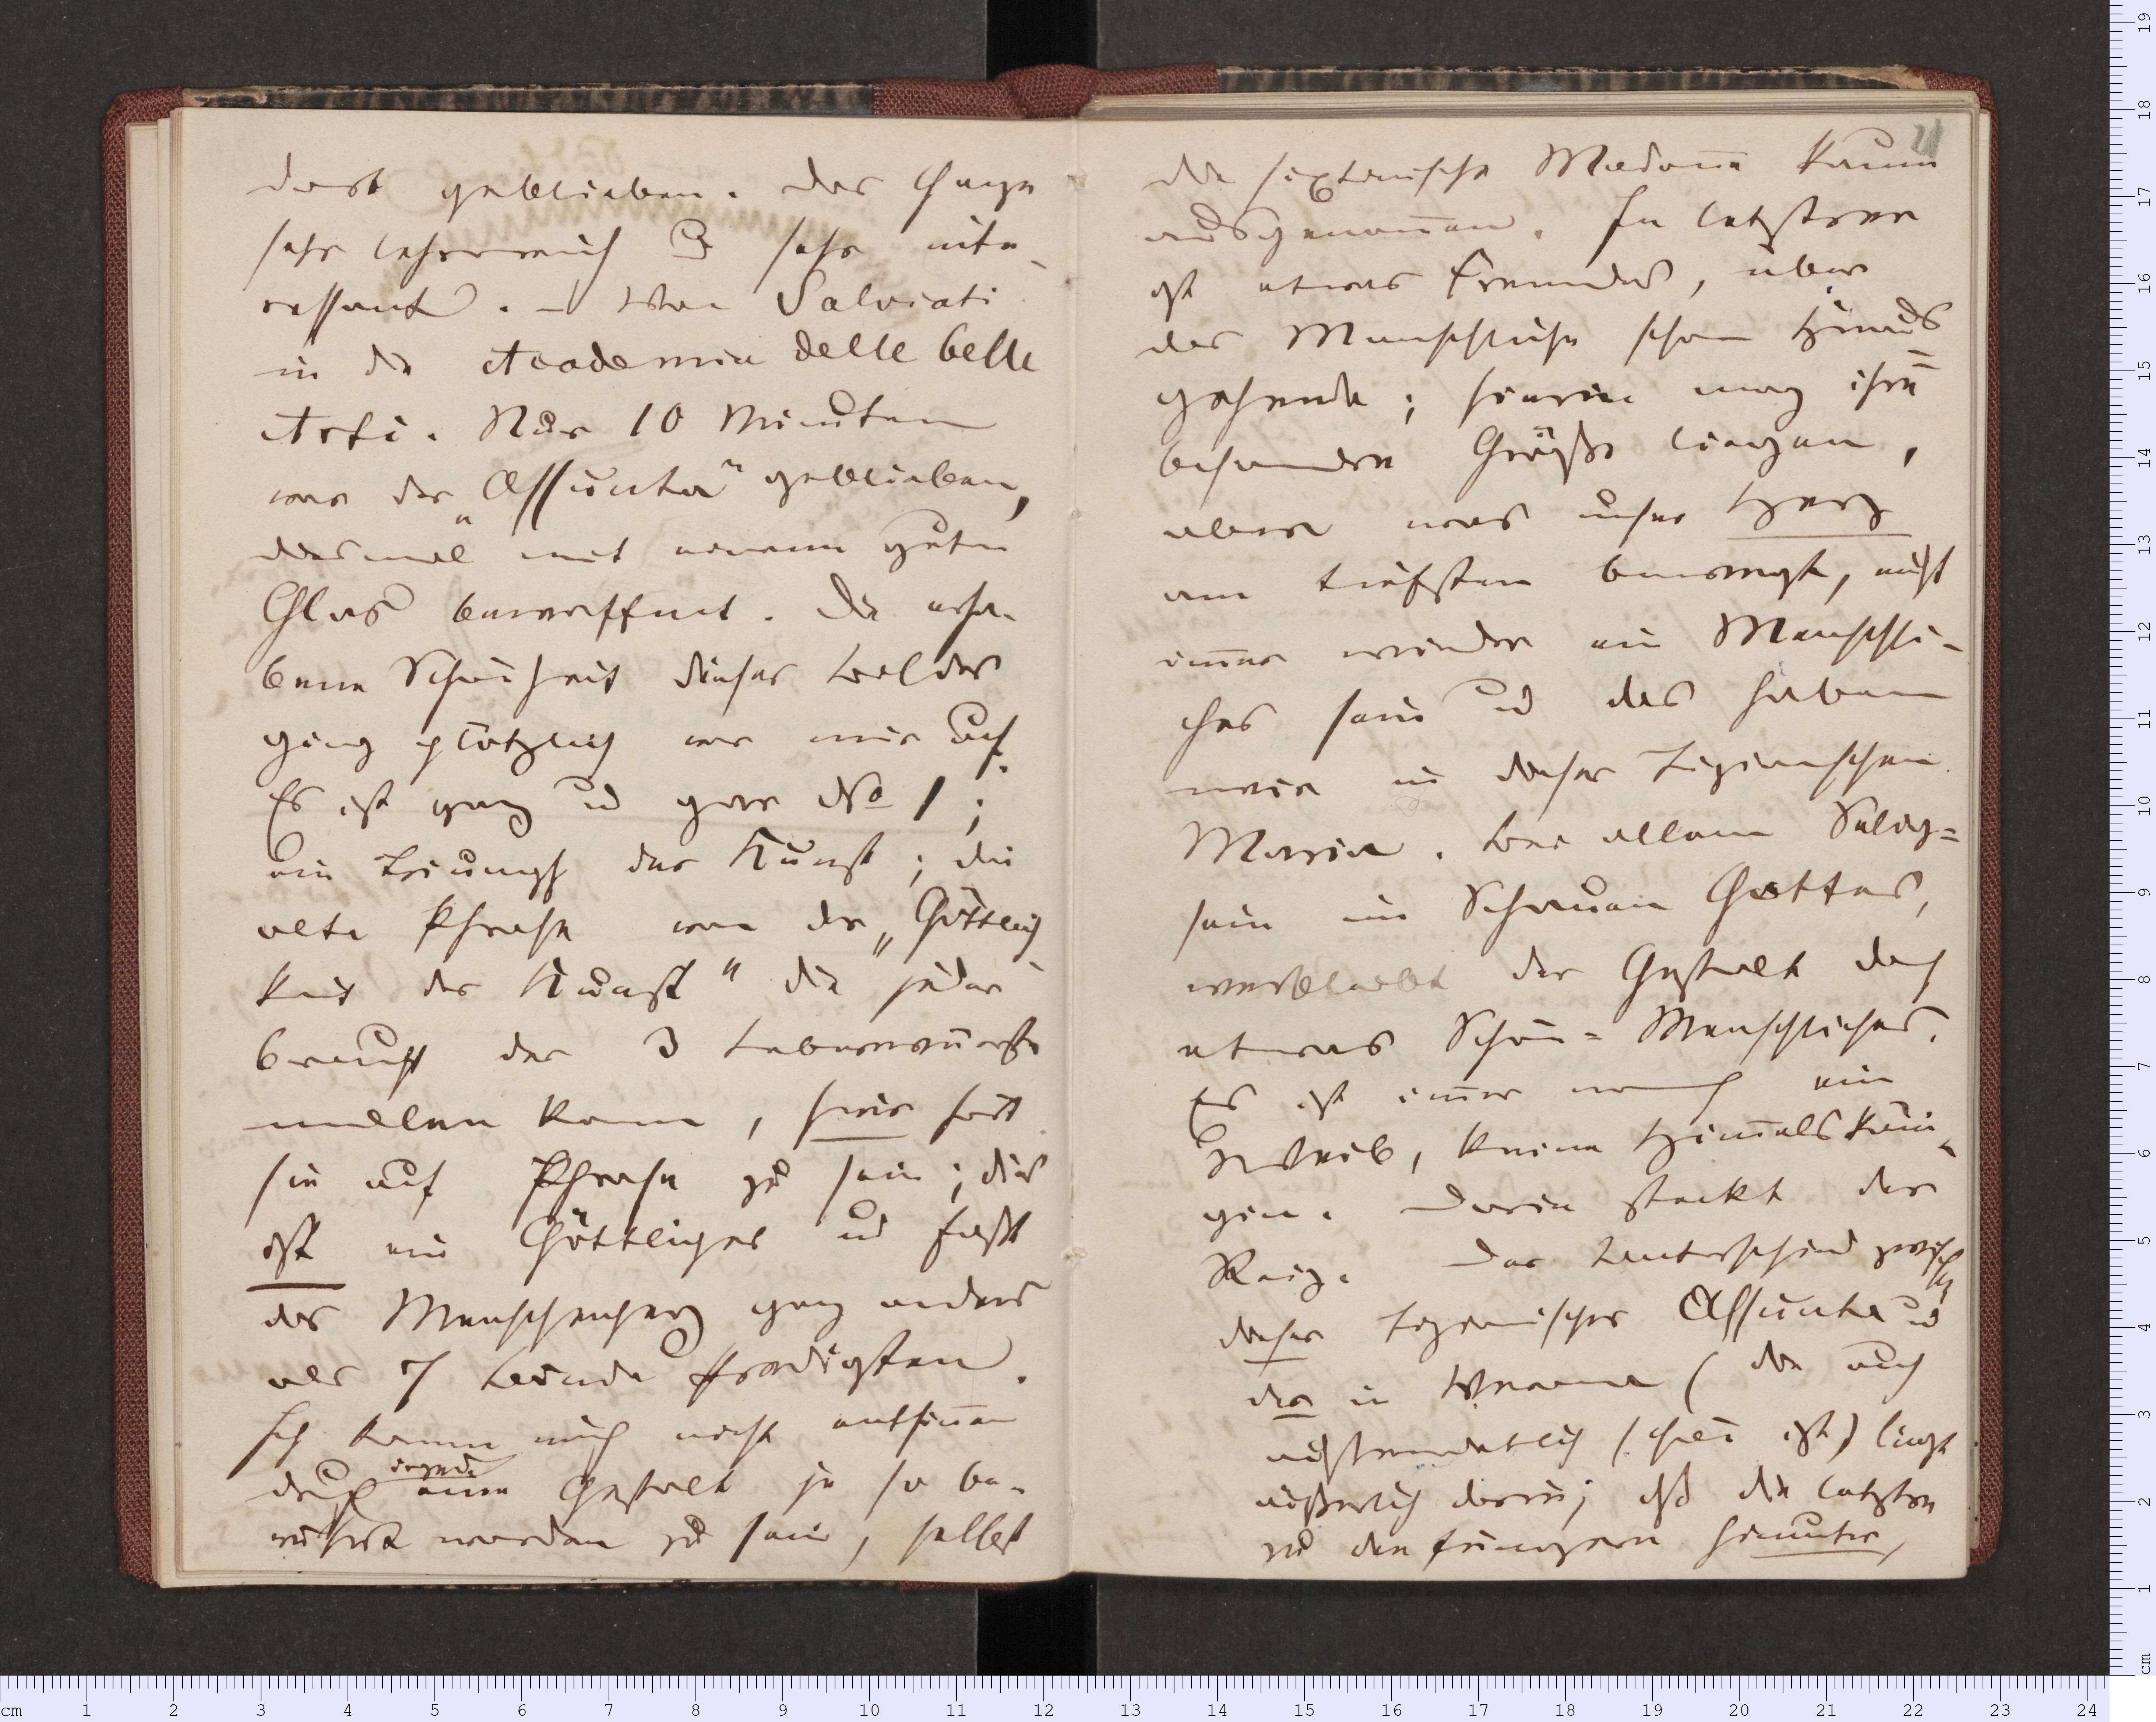 dort geblieben. Das Ganze
sehr lehrreich u sehr inte-
ressant. – Von Salviati
in die Academia delle belle
Arti. Nur 10 Minuten
vor der „Assunta“ geblieben,
diesmal mit einem guten
Glas bewaffnet. Die erha-
bene Schönheit dieses Bildes
ging plötzlich vor mir auf.
Es ist ganz und gar No 1;
ein Triumph der Kunst; die
alte Phrase von der „Göttlich
keit der Kunst“ die jeder
braucht der 3 Leberwürste
malen kann, hier hört
sie auf Phrase zu sein; dies
ist ein Göttliches und faßt
das Menschenherz ganz anders
als 7 Bände Predigten.
Ich kann mich nicht entsinnen
durch irgend eine Gestalt je so be-
rührt worden zu sein, selbst
21
die sixtinische Madonna kaum
ausgenommen. In letztrer
ist etwas Fremdes, über
das Menschliche schon Hinaus
gehende; hierin mag ihre
besondre Größe liegen,
aber was unser Herz
am tiefsten bewegt, muß
immer wieder ein Menschli-
ches sein und das haben
wir in dieser Tizianschen
Maria. Bei allem Selig-
sein im Schauen Gottes,
verbleibt der Gestalt doch
etwas Schön-Menschliches.
Es ist immer noch ein
Weib, keine Himmelsköni-
gin. Darin steckt der
Reiz. Der Unterschied zwischen
dieser tizianischen Assunta und
der in Verona (die auch
außerordentlich schön ist) liegt
äußerlich darin, daß die letztre
zu den Jüngern hinunter,